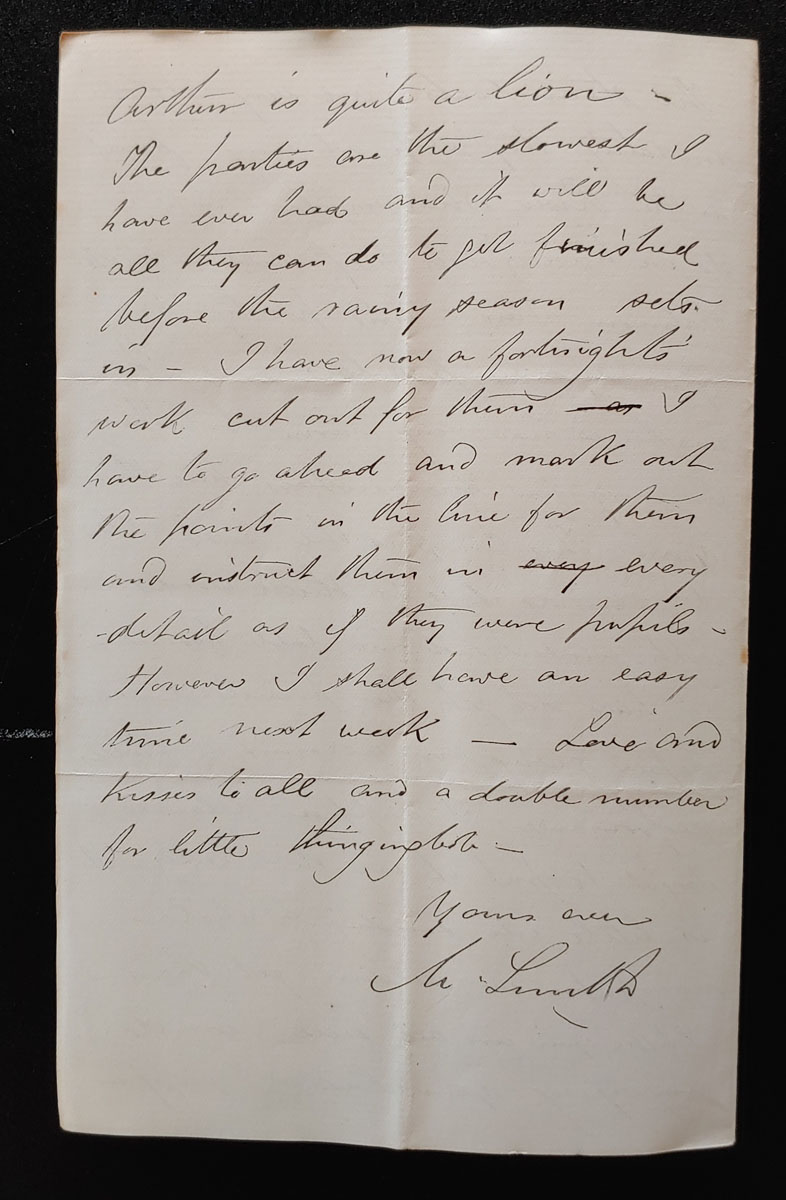 Arthur is quite a lion -
The parties are the slowest I
have ever had and it will be
all they can do to get finished
before the rainy season sets
in - I have now a fortnight's
work cut out for them as I
have to go ahead and mark out
the points in the line for them
and instruct them in every every
detail as if they were pupils -
However I shall have an easy
time next week — Love and
Kisses to all and a double number
for little thingingbob -
Yours ever
Smith